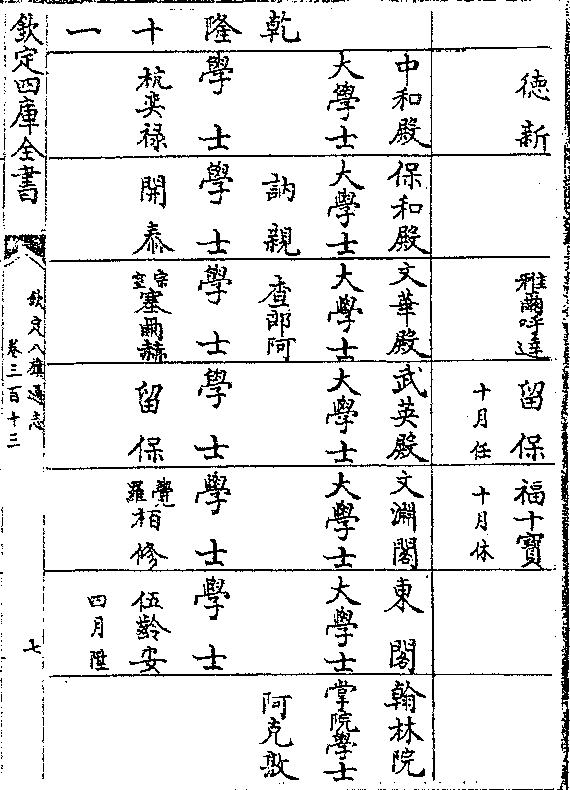 德新 雅爾呼達 留保 福十寶
十月任 十月休
中和殿 保和殿 文華殿 武英殿 文淵閣 東閣 翰林院
大學士 大學士 大學士 大學士 大學士 大學士 掌院學士
乾 訥親 查郎阿 阿克敦
隆 學士 學士 學士 學士 學士 學士
十 杭奕禄 開泰 宗室塞爾赫 留保 覺羅栢修 伍齡安
一 四月陞
欽定四庫全書 欽定八旗通志 卷三百十三 七